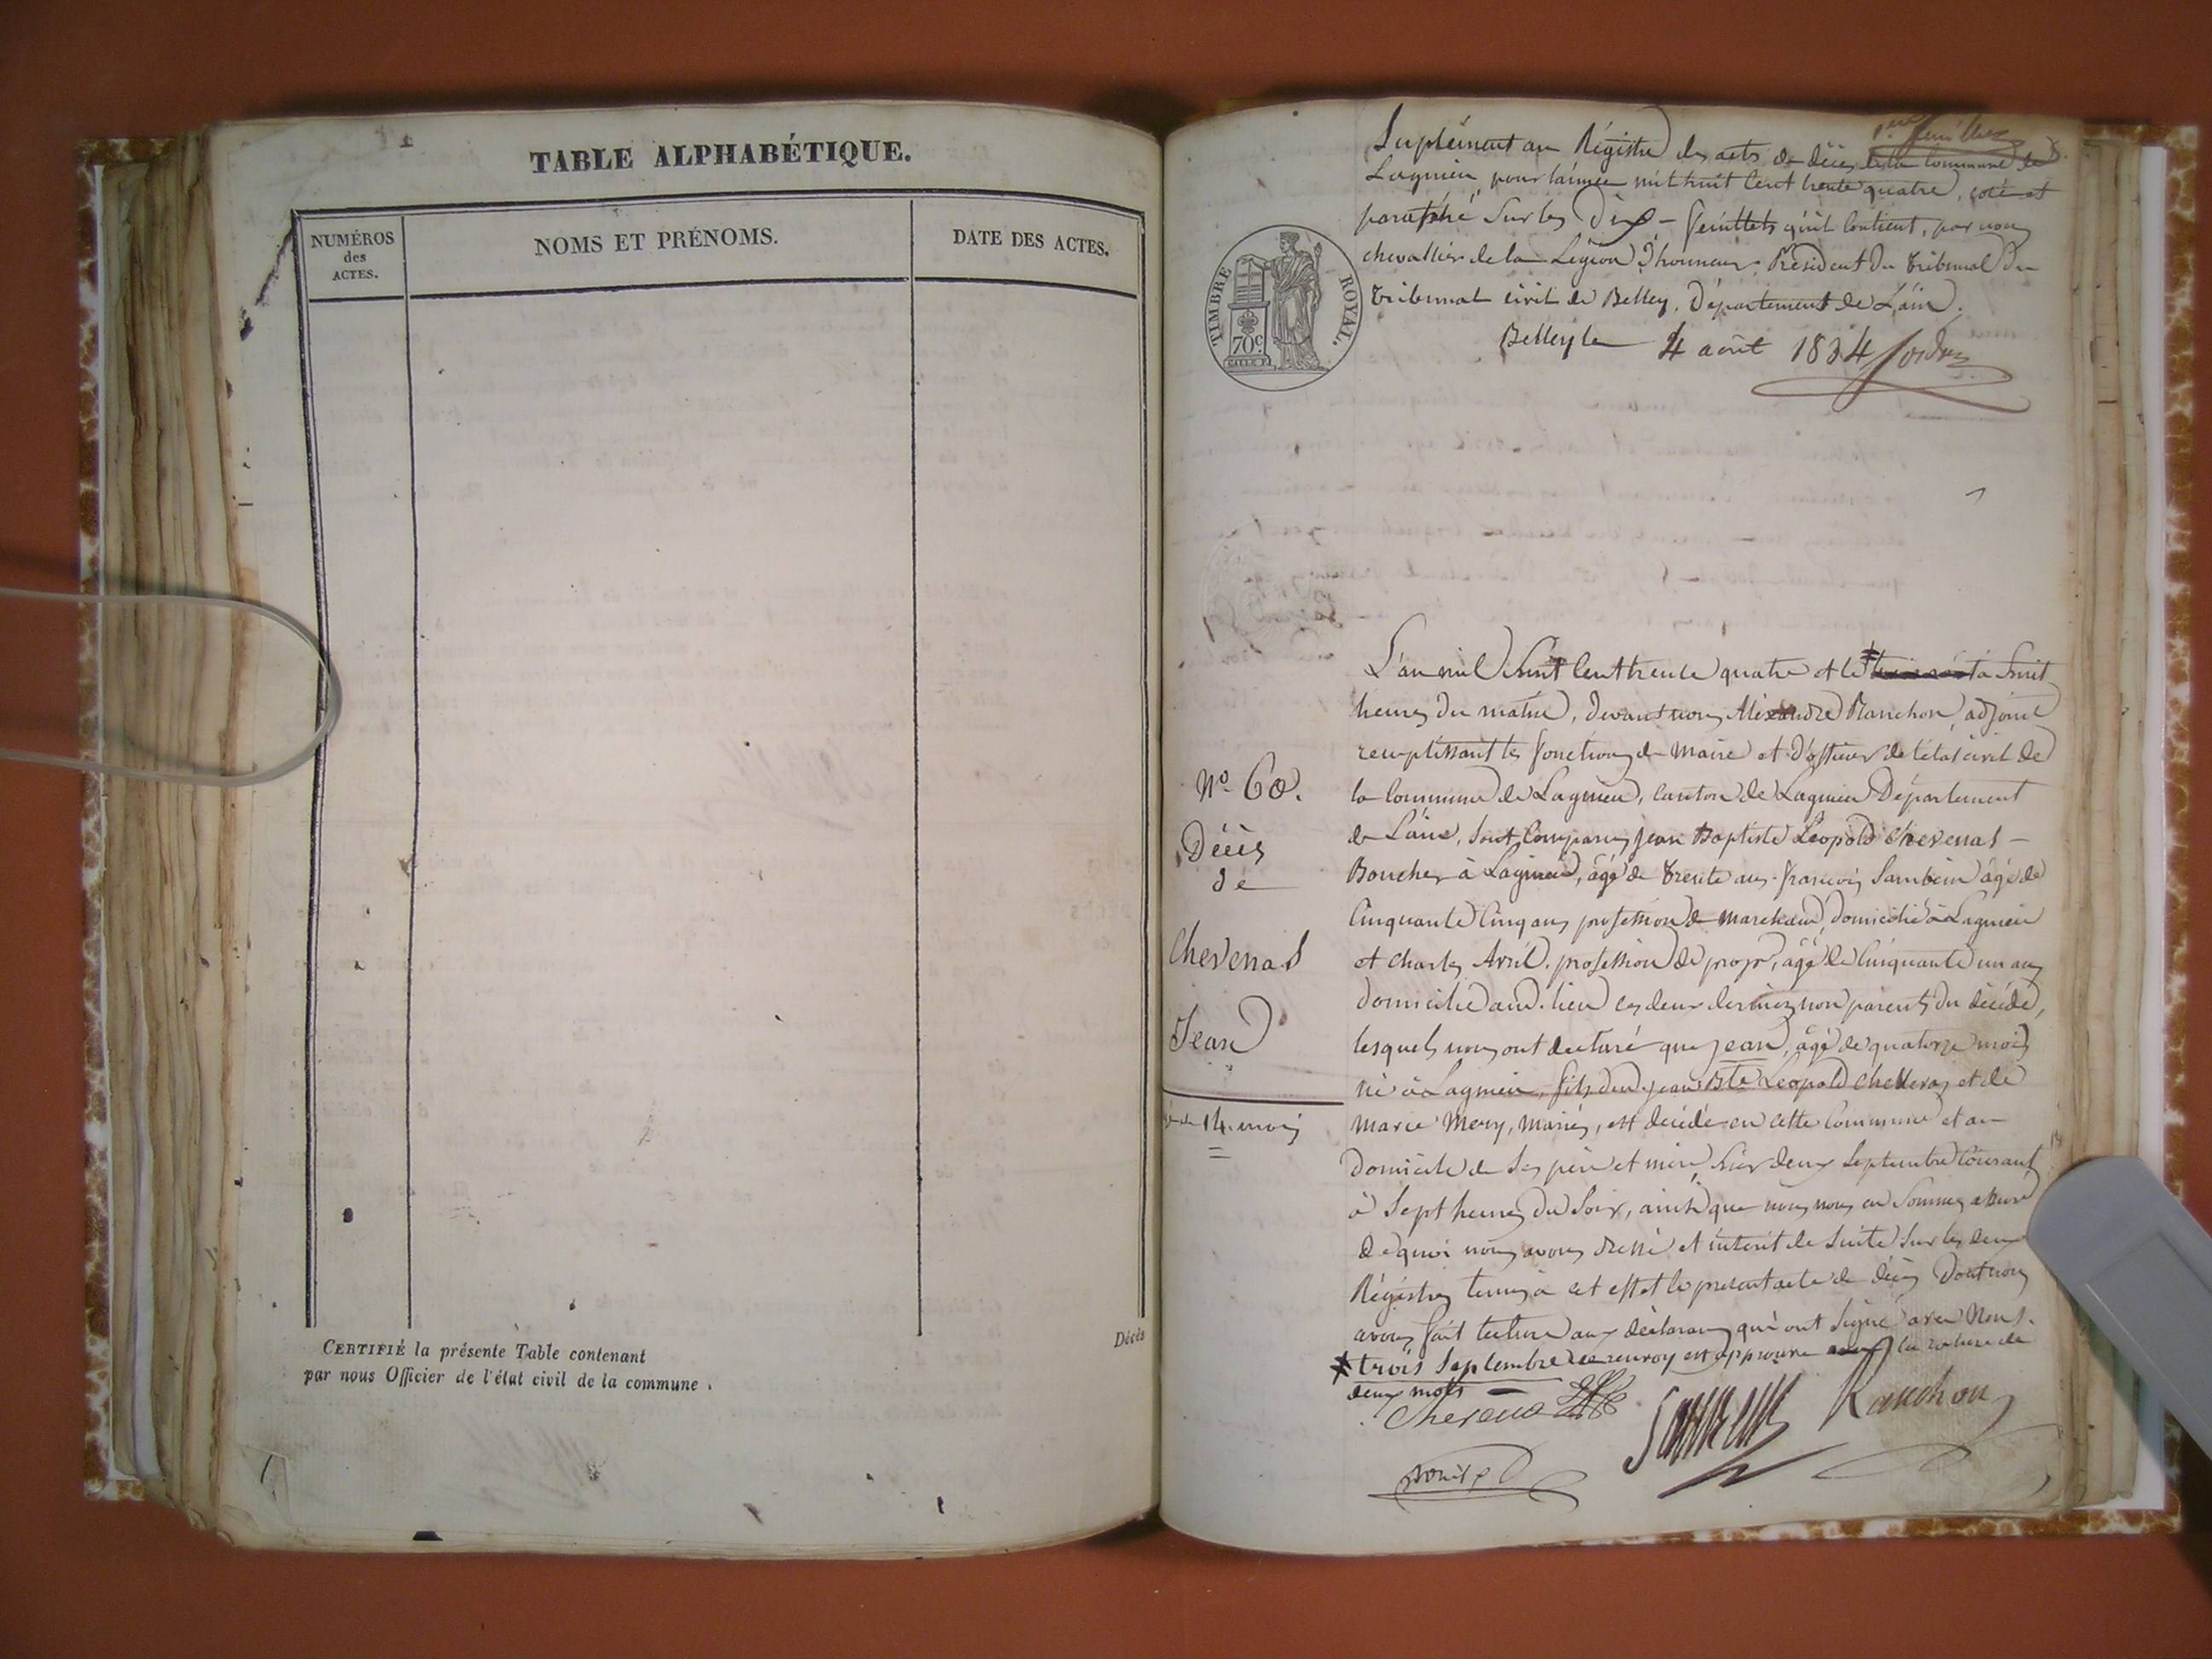 TABLE ALPHABÉTIQUE.
NUMÉROS
des
ACTES.
NOMS ET PRÉNOMS.
DATE DES ACTES.
CERTIFIÉ la présente Table contenant
par nous Officier de l'état civil de la commune .
Décès
Suplément au Régistre des actes de décès de la Commune de
Lagnieu pour l'année mil huit Cent trente quatre, coté et
paraphé Sur les Dix - feuillets qu'il Contient, par nous
chevallier de la Légion d'honneur, Président du tribunal du
tribunal civil de Belley, Département de L'ain.
Belley le 4 août 1834
TIMBRE ROYAL.
70c
L'an mil huit Cent trente quatre et le à huit
heures du matin, devant nous Alexandre Ranchon, adjoint
remplissant les fonctions de Maire et d'officier de l'état civil de
la Commune de Lagnieu, canton de Lagnieu Département
de L'ain, Sont Comparus Jean Baptiste Léopold Chevenas -
Boucher à Lagnieu, âgé de trente ans. françois Sambein âgé de
Cinquante Cinq ans, profession de marchand, domicilié à Lagnieu
et Charles Avril. profession de propr, âgé de Cinquante un ans
domicilié aud. lieu ces deux derniers non parents du décédé,
lesquels nous ont déclaré que Jean, âgé de quatorze mois
né à Lagnieu, fils dud. Jean Bte Léopold Chevenas et de
marie Mery, mariés, est décédé en cette Commune et au
domicile de Ses père et mère, hier deux Septembre Courant
à Sept heures du Soir, ainsi que nous nous en Sommes assuré
de quoi nous avons dressé et inscrit de Suite Sur les deux
Régistres tenus à cet effet le présent acte de décès Dont nous
avons fait lecture aux déclarans qui ont Signé avec Nous.
* trois Septembre ce renvoy est approuvé la rature de
deux mots -
Chevenas Sambein Ranchon
No 60.
Décès
de
Chevenas
Jean
14 mois